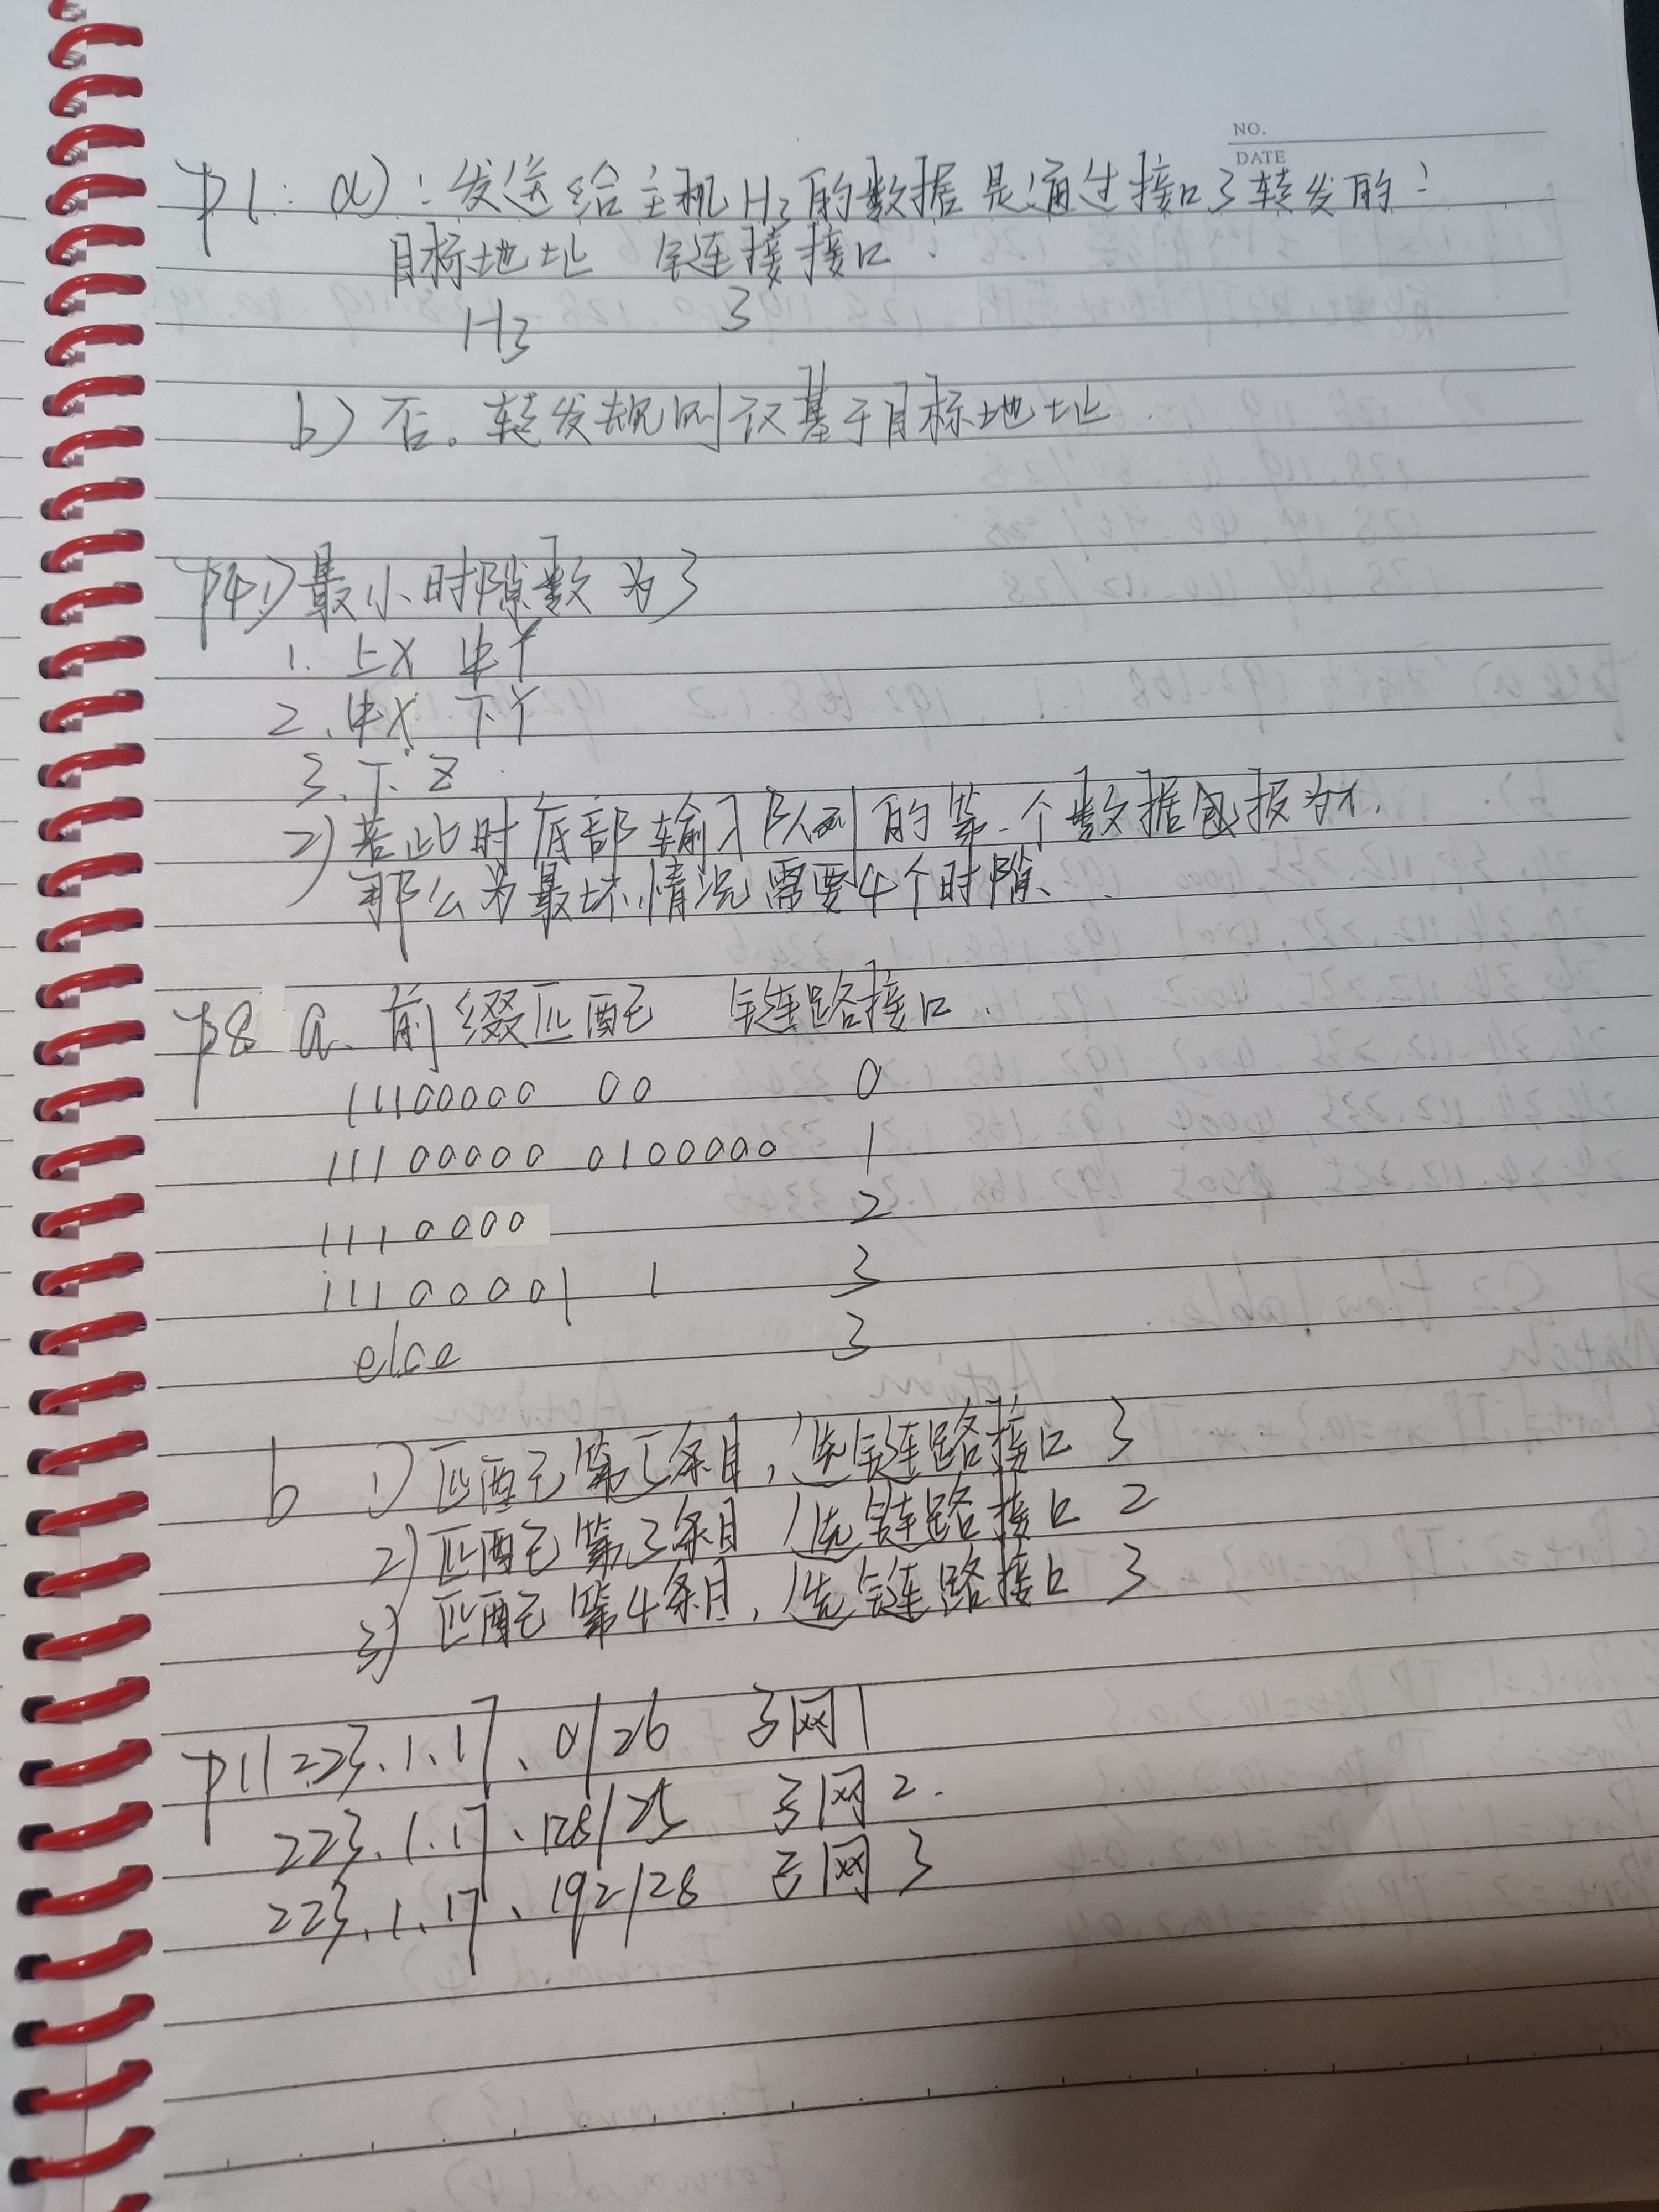 NO.
DATE
P1: a): 发送给主机H3的数据是通过接口3转发的:
目标地址 链接接口.
H3 3
b) 否。转发规则仅基于目标地址.
P4 1) 最小时隙数为3
1. 上X 中Y
2. 中X 下Y
3. 下Z
2) 若此时底部输入队列的第一个数据报为X,
那么为最坏情况需要4个时隙.
P8 a. 前缀匹配 链路接口.
11100000 00 0
11100000 0100000 1
1110000 2
11100001 1 3
else 3
b 1) 匹配第5条目, 选链路接口 3
2) 匹配第3条目, 选链路接口 2
3) 匹配第4条目, 选链路接口 3
P11 223.1.17.0/26 子网1
223.1.17.128/25 子网2.
223.1.17.192/28 子网3